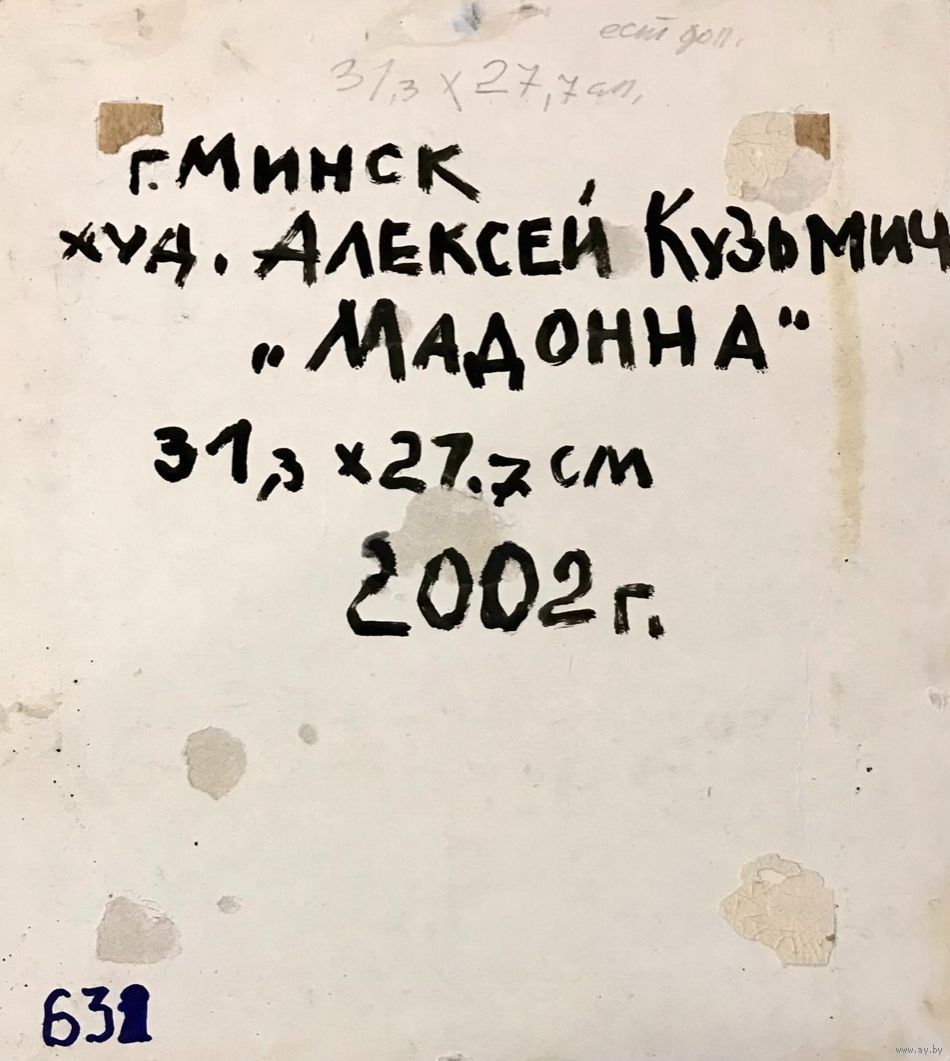 ест доп.
31,3 х 27,7 см,
г. Минск
худ. Алексей Кузьмич
„Мадонна"
31,3 х 27.7 см
2002 г.
631
www.ay.by